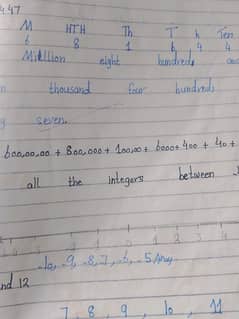 4.47
M HTH Th T h Ten
6 8 1 6 4 4
Million eight hundreds
thousand four hundreds
seven.
600,00,00 + 800,000 + 100,00 + 6000 + 400 + 40 +
all the integers between
5 4 3 2 1 0 1 2 3 4
-10, -9, -8, 7, -6, -5 Ans
nd 12
7, 8, 9, 10, 11